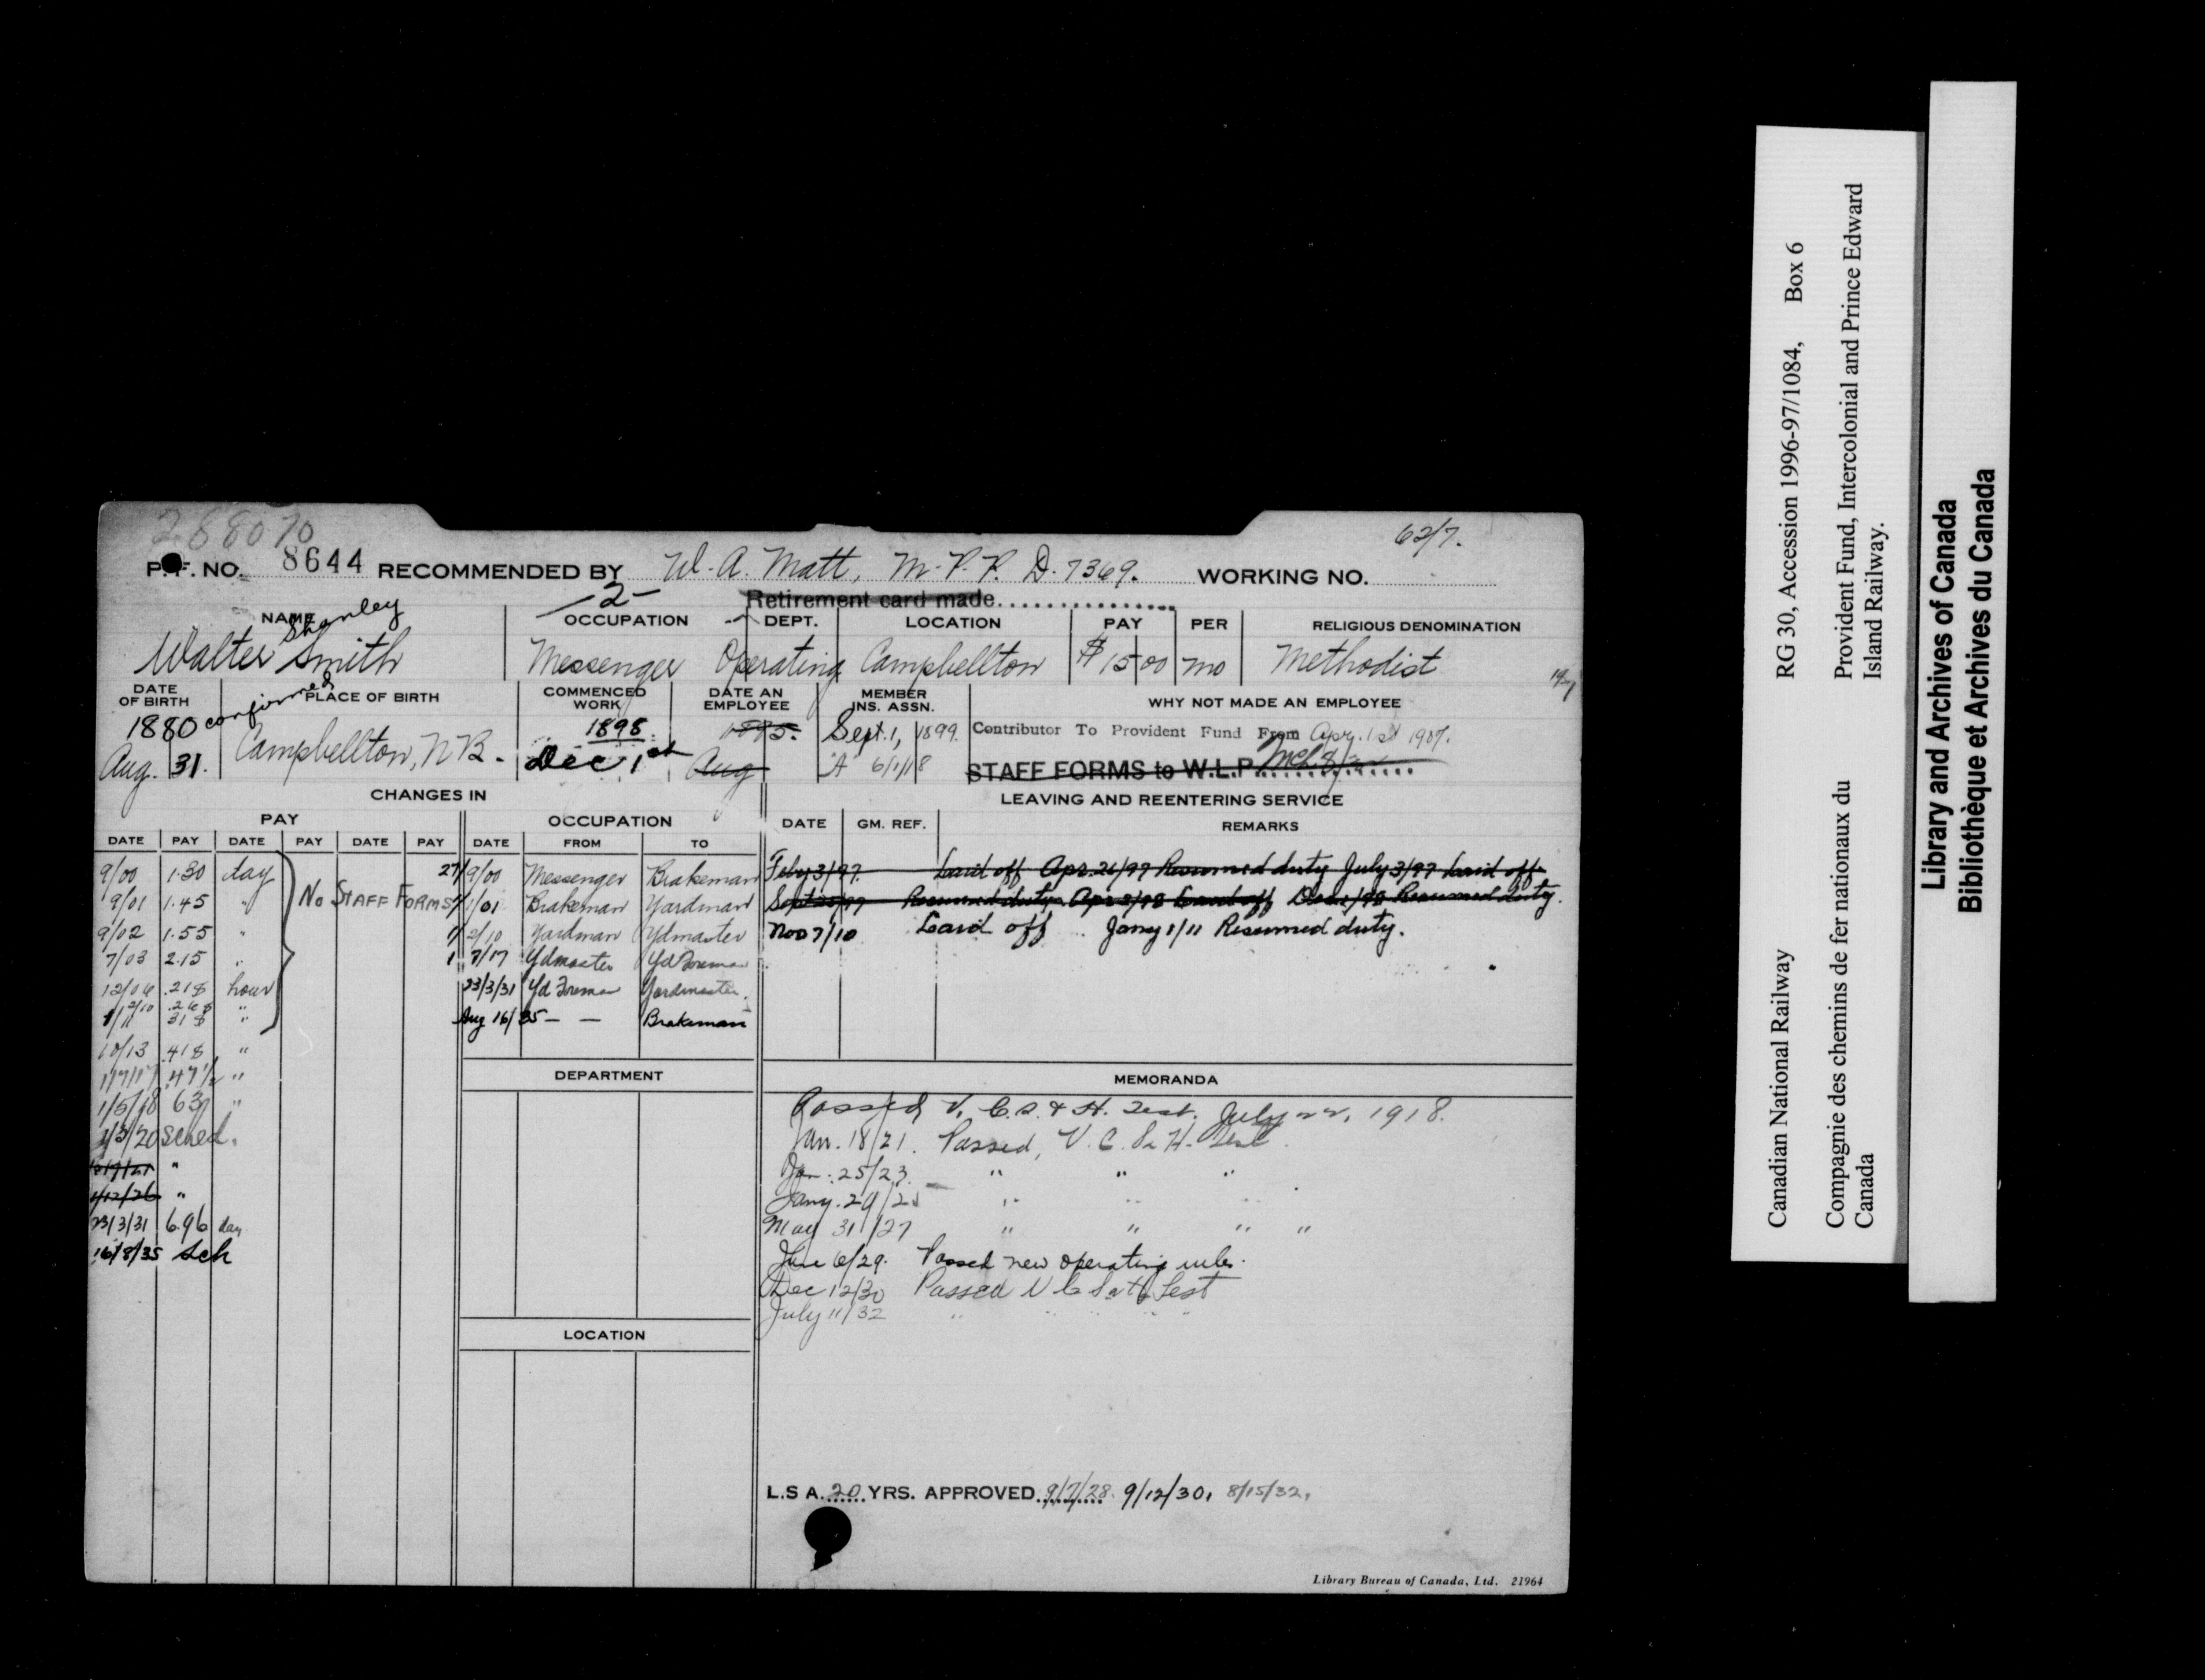 268070
62/7.
P.F. NO. 8644 RECOMMENDED BY W. A. Matt, M.P.P. D. 7369. WORKING NO.
-2- Retirement card made
NAME OCCUPATION DEPT. LOCATION PAY PER RELIGIOUS DENOMINATION
Stanley
Walter Smith Messenger Operating Campbellton $ 15 00 mo Methodist
DATE OF BIRTH PLACE OF BIRTH COMMENCED WORK DATE AN EMPLOYEE MEMBER INS. ASSN. WHY NOT MADE AN EMPLOYEE
1880 confirmed 1898 1895. Sept. 1, 1899. Contributor To Provident Fund From Apr. 1st 1907.
Aug. 31. Campbellton, N B. Dec 1st Aug "A" 6/1/18 STAFF FORMS to W.L.P.
CHANGES IN LEAVING AND REENTERING SERVICE
PAY OCCUPATION DATE GM. REF. REMARKS
DATE PAY DATE PAY DATE PAY DATE FROM TO
9/00 1.30 day 27/9/00 Messenger Brakeman Feby 3/97. Laid off Apr. 26/97 Resumed duty July 3/97 Laid off
9/01 1.45 " No STAFF FORMS 1/01 Brakeman Yardman Sept 25/97 Resumed duty Apr 2/98 Laid off Dec 1/98 Resumed duty.
9/02 1.55 " 1/2/10 Yardman Ydmaster Nov 7/10 Laid off Jany 1/11 Resumed duty.
7/03 2.15 " 1/7/17 Ydmaster Yd Foreman
12/06 .218 hour 23/3/31 Yd Foreman Yardmaster.
12/10 .268 "
1/11 318 " Aug 16/35 — — Brakeman
10/13 .418 "
1/7/17 .47½ "
1/5/18 63 "
1/3/20 Sched.
"
1/12/26 "
23/3/31 6.96 day
16/8/35 Sch
DEPARTMENT
LOCATION
MEMORANDA
Passed V. C. S. & H. Test. July 22, 1918.
Jan. 18/21. Passed, V. C. S. & H. Test.
Jan. 25/23. " " "
Jany. 29/25 " " "
May 31/27 " " " "
June 6/29. Passed new operating rules.
Dec 12/30 Passed V C S & H Test
July 11/32 " " " "
L.S A. 20 YRS. APPROVED 9/7/28. 9/12/30, 8/15/32,
Library Bureau of Canada, Ltd. 21964
Canadian National Railway RG 30, Accession 1996-97/1084, Box 6
Compagnie des chemins de fer nationaux du Canada
Provident Fund, Intercolonial and Prince Edward Island Railway.
Library and Archives of Canada
Bibliothèque et Archives du Canada